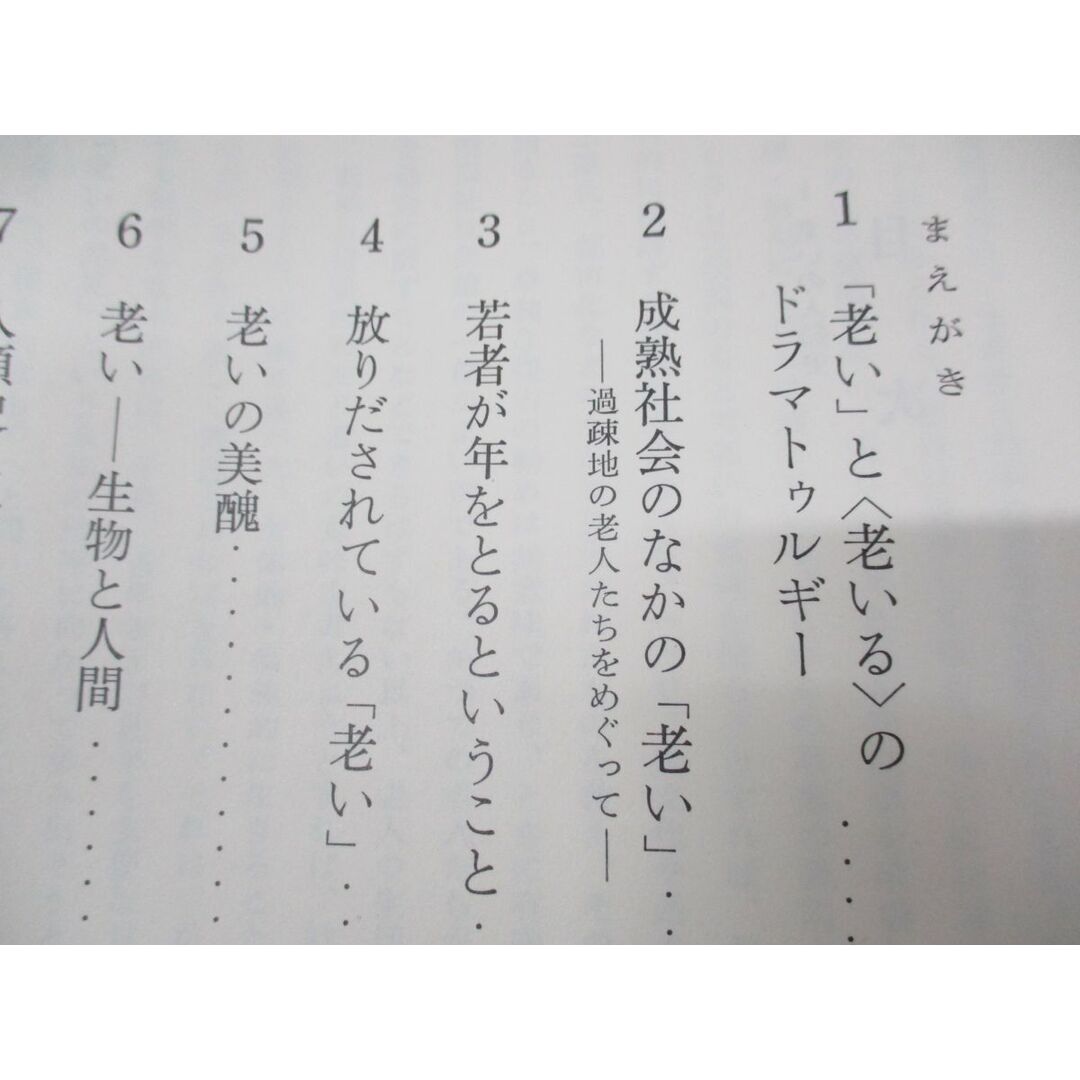 まえがき
1 「老い」と〈老いる〉の
ドラマトゥルギー ....
2 成熟社会のなかの「老い」..
―過疎地の老人たちをめぐって―
3 若者が年をとるということ.
4 放りだされている「老い」..
5 老いの美醜........
6 老い―生物と人間.....
7